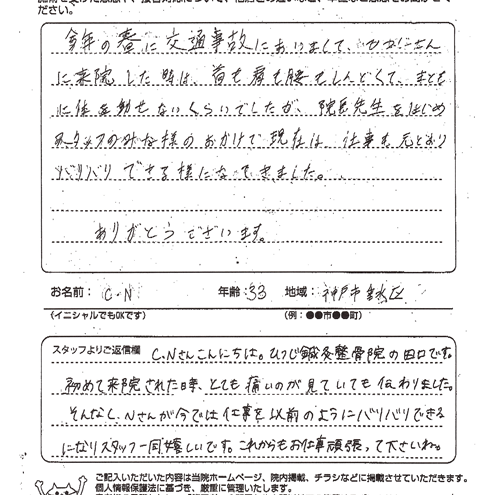 ださい。
今年の春に交通事故にあいまして、ひつじさん
に来院した時は、首も肩も腰もしんどくて、まとも
に体も動せないくらいでしたが、院長先生をはじめ
スタッフのみな様のおかげで現在は、仕事も元どおり
バリバリできる様になってきました。
ありがとうございます。
お名前： C.N 年齢：33 地域： 神戸市 区
(イニシャルでもOKです) (例：●●市●●町)
スタッフよりご返信欄 C.Nさんこんにちは。ひつじ鍼灸整骨院の田口です。
初めて来院された時、とても痛いのが見ていても伝わりました。
そんなC.Nさんが今では仕事を以前のようにバリバリできる
になりスタッフ一同嬉しいです。これからもお仕事頑張って下さいね。
ご記入いただいた内容は当院ホームページ、院内掲載、チラシなどに掲載させていただきます。
個人情報保護法に基づき、厳重に管理いたします。